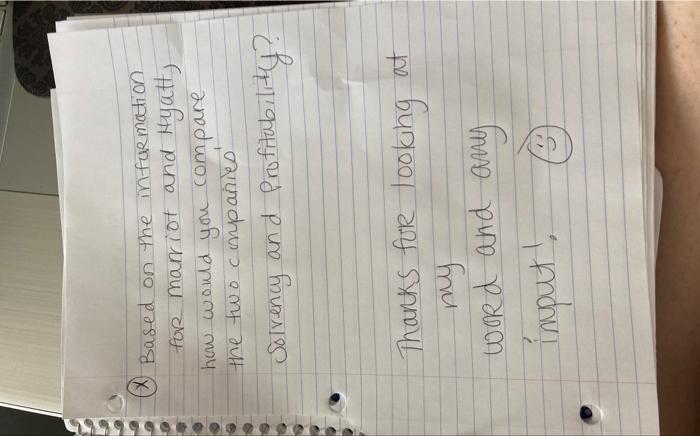 (X) Based on the information
for marriot and Hyatt,
how would you compare
the two companies'
Solvency and Profitability?
Thanks for looking at
my
word and any
input! :)